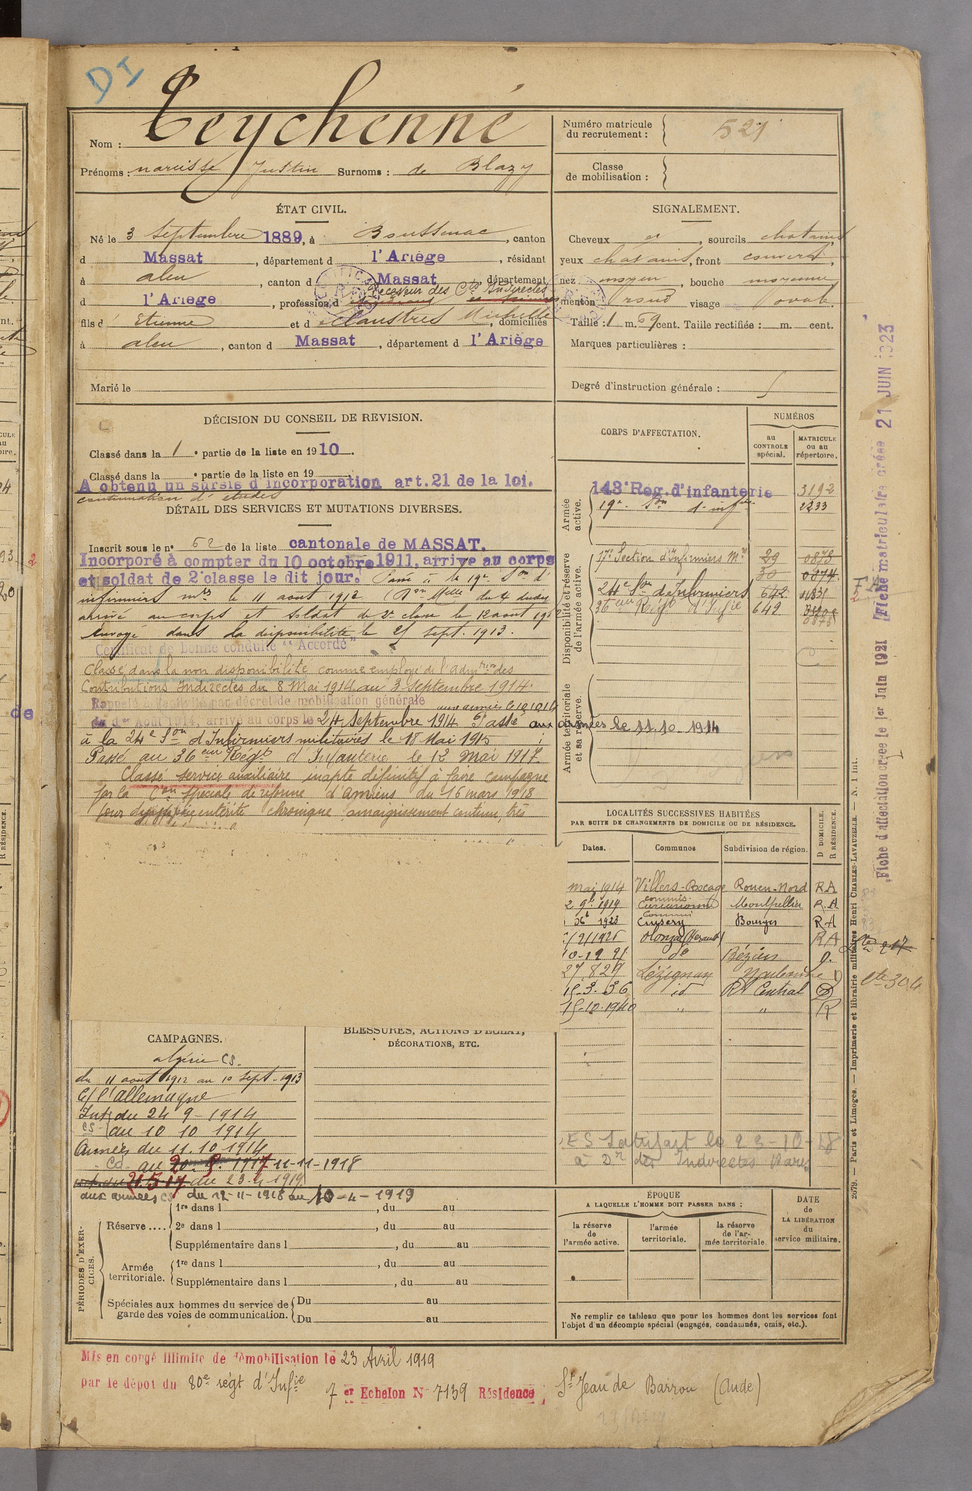 DI
Nom : Teychenné
Prénoms : narcisse Justin Surnoms : de Blazy
Numéro matricule du recrutement : 521
Classe de mobilisation :
ÉTAT CIVIL.
Né le 3 Septembre 1889, à Boussenac, canton
d Massat, département d l'Ariège, résidant
à aleu, canton d Massat, département
d l'Ariège, profession d Receveur des Ctons Indirectes
fils d Etienne et d Claustres Michelle, domiciliés
à aleu, canton d Massat, département d l'Ariège
Marié le
SIGNALEMENT.
Cheveux et, sourcils chatains
yeux chatains, front couvert,
nez moyen, bouche moyenne,
menton rond visage ovale.
Taille : 1 m. 69 cent. Taille rectifiée : m. cent.
Marques particulières :
Degré d'instruction générale :
DÉCISION DU CONSEIL DE REVISION.
Classé dans la 1 e partie de la liste en 1910.
Classé dans la e partie de la liste en 19
A obtenu un sursis d'incorporation art. 21 de la loi.
continuation d'études
DÉTAIL DES SERVICES ET MUTATIONS DIVERSES.
Inscrit sous le n° 52 de la liste cantonale de MASSAT.
Incorporé à compter du 10 octobre 1911, arrive au corps
et soldat de 2e classe le dit jour. Passé à la 19e Son d'
infirmiers mres le 11 aout 1912
arrivé au corps et soldat de 2e classe le 12 aout 1912
Envoyé dans la disponibilité le 25 sept. 1913.
Certificat de bonne conduite "Accordé"
Classé dans la non disponibilité comme employé de l'admton des
Contributions Indirectes du 8 Mai 1914 au 3 Septembre 1914.
Rappelé par décret de mobilisation générale
du 1er Août 1914, arrivé au corps le 24 Septembre 1914. Passé aux armées le 11.10.1914
à la 24e Son d'Infirmiers militaires le 18 Mai 1915
Passé au 36eme Régt d'Infanterie le 12 Mai 1917.
Classé service auxiliaire inapte définitif à faire campagne
par la Con spéciale de réforme d'Amiens du 16 mars 1918
pour entérite chronique amaigrissement continu, très
CORPS D'AFFECTATION.
NUMÉROS
au CONTROLE spécial.
MATRICULE ou au répertoire.
Armée active.
143e Rég. d'infanterie 3192
19e Son d'infers 2233
Disponibilité et réserve de l'armée active.
17e Section d'Infirmiers Mres 29 0878
30 0874
24e Son d'Infirmiers 642
36eme Régt d'Infie 642
Armée territoriale et sa réserve.
LOCALITÉS SUCCESSIVES HABITÉES
PAR SUITE DE CHANGEMENTS DE DOMICILE OU DE RÉSIDENCE.
Dates. Communes Subdivision de région. D DOMICILE. R RÉSIDENCE.
mai 1914 Villers-Bocage Rouen-Nord RA
1919 Carcassonne Montpellier RA
1923 Cusery Bourges RA
1925 Olonzac (Hérault) RA
10-12 21 de Béziers
27.8 27 Lézignan Narbonne D
15-3-36 id RA Central D
15-10-1940 " " R
CAMPAGNES.
algérie CS
du 11 aout 1912 au 10 sept-1913
C/ l'allemagne
Int du 24 9 - 1914
CS au 10 10 1914
Armées du 11.10.1914
CD au 20.9.1917 11-11-1918
aux armées CS du 12-11-1918 au 10-4-1919
BLESSURES, ACTIONS D'ÉCLAT,
DÉCORATIONS, ETC.
à Don des Indirectes Paris
PÉRIODES D'EXERCICES.
Réserve .... 1re dans l , du au
2e dans l , du au
Supplémentaire dans l , du au
Armée territoriale. 1re dans l , du au
Supplémentaire dans l , du au
Spéciales aux hommes du service de garde des voies de communication. Du au
Du au
ÉPOQUE
A LAQUELLE L'HOMME DOIT PASSER DANS :
la réserve de l'armée active.
l'armée territoriale.
la réserve de l'armée territoriale.
DATE de LA LIBÉRATION du service militaire.
Ne remplir ce tableau que pour les hommes dont les services font
l'objet d'un décompte spécial (engagés, condamnés, omis, etc.).
Mis en congé illimité de démobilisation le 23 Avril 1919
par le dépot du 80e régt d'Infie 7 er Echelon N° 7139 Résidence : St Jean de Barrou (Aude)
Fiche d'affectation créée le 1er Juin 1921
Fiche matriculaire créée 21 JUIN 1923
2679. — Paris et Limoges. — Imprimerie et librairie militaires Henri CHARLES-LAVAUZELLE. — N. 1 int.